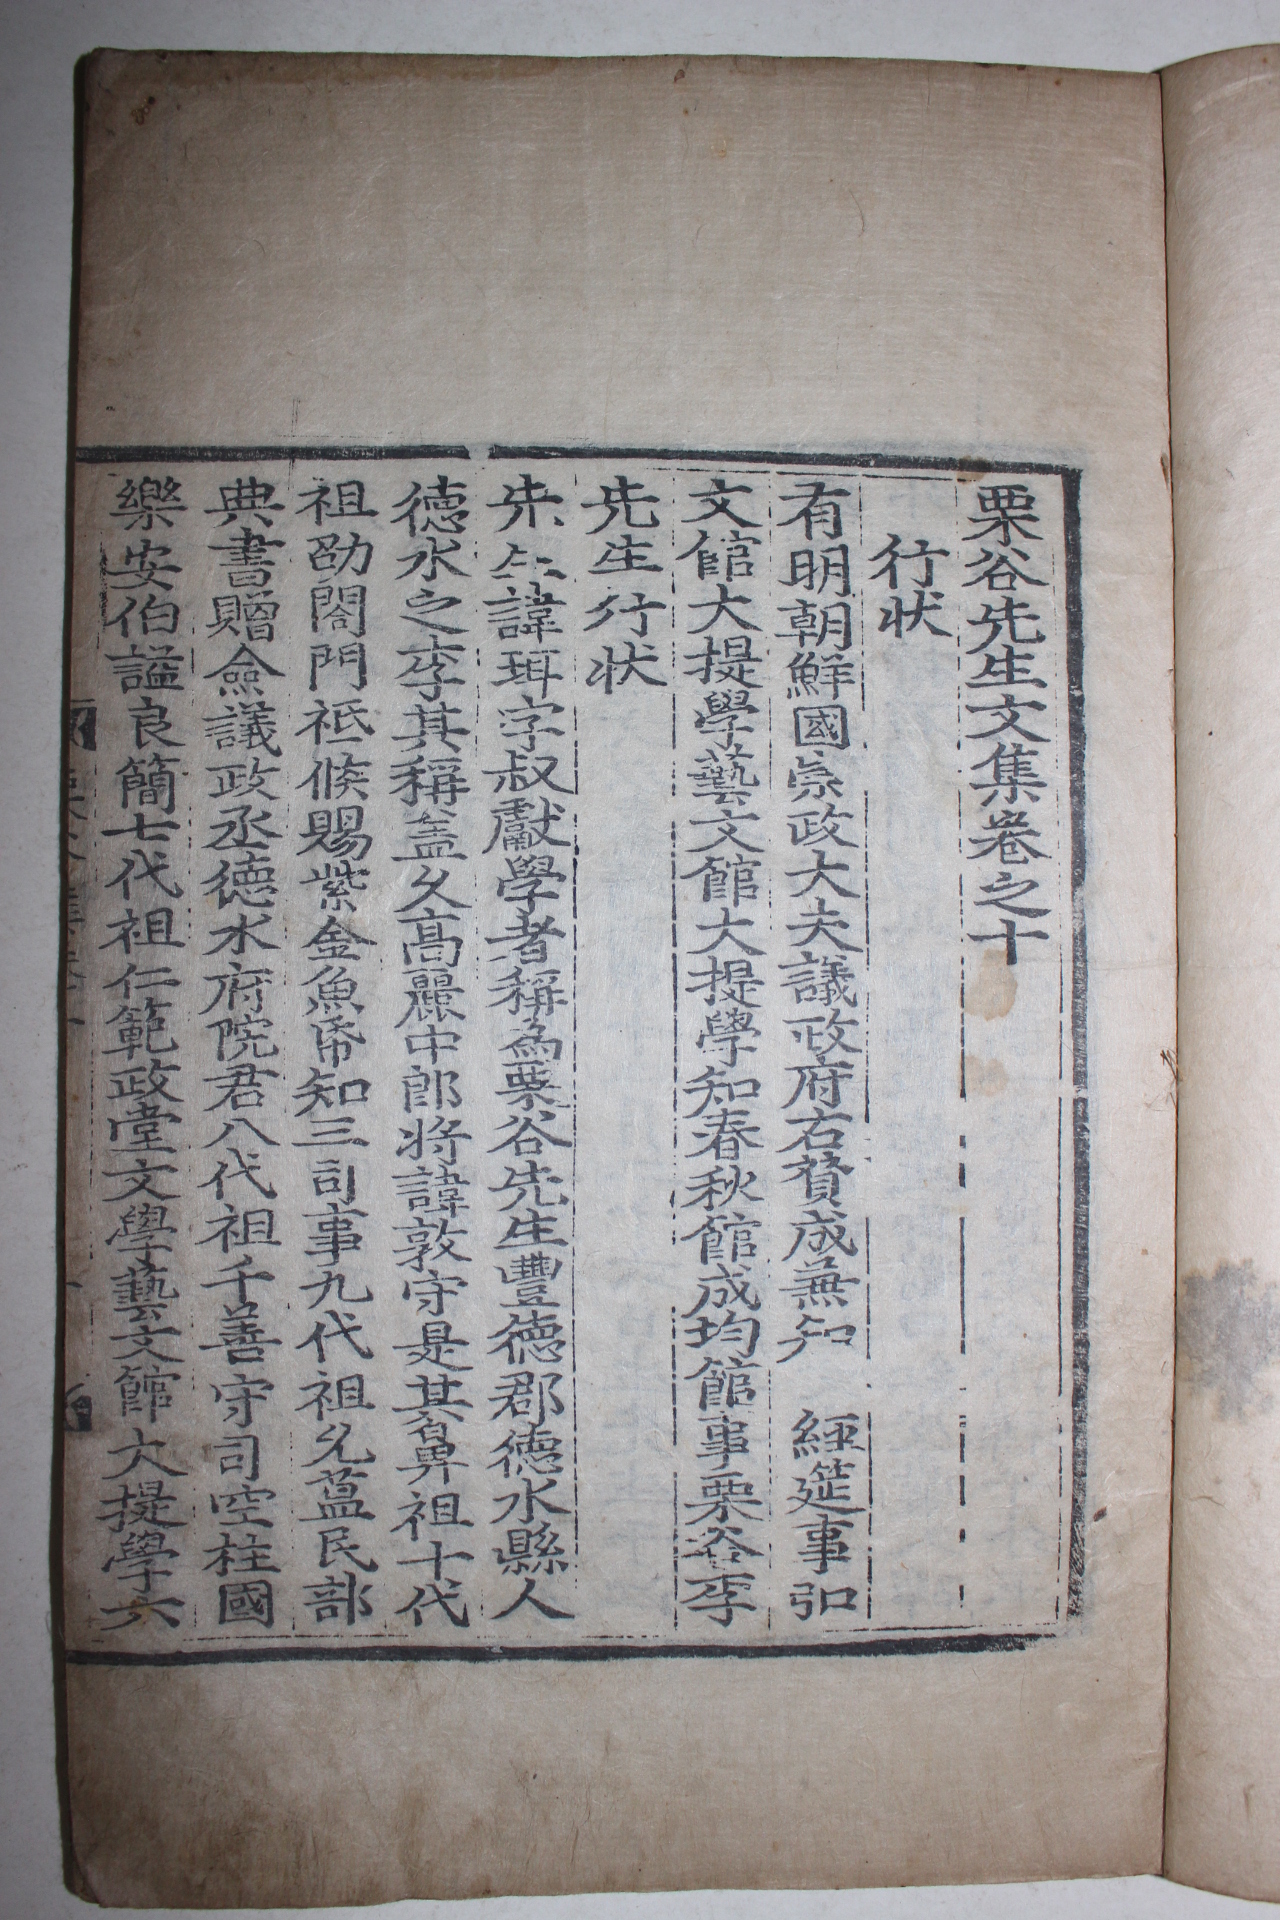 栗谷先生文集卷之十
行狀
有明朝鮮國崇政大夫議政府右贊成兼知 經筵事弘
文館大提學藝文館大提學知春秋館成均館事栗谷李
先生行狀
先生諱珥字叔獻學者稱爲栗谷先生豐德郡德水縣人
德水之李其稱盖久高麗中郎將諱敦守是其鼻祖十代
祖劭閤門祗候賜紫金魚帒知三司事九代祖允蒀民部
典書贈僉議政丞德水府院君八代祖千善守司空柱國
樂安伯謚良簡七代祖仁範政堂文學藝文館大提學六